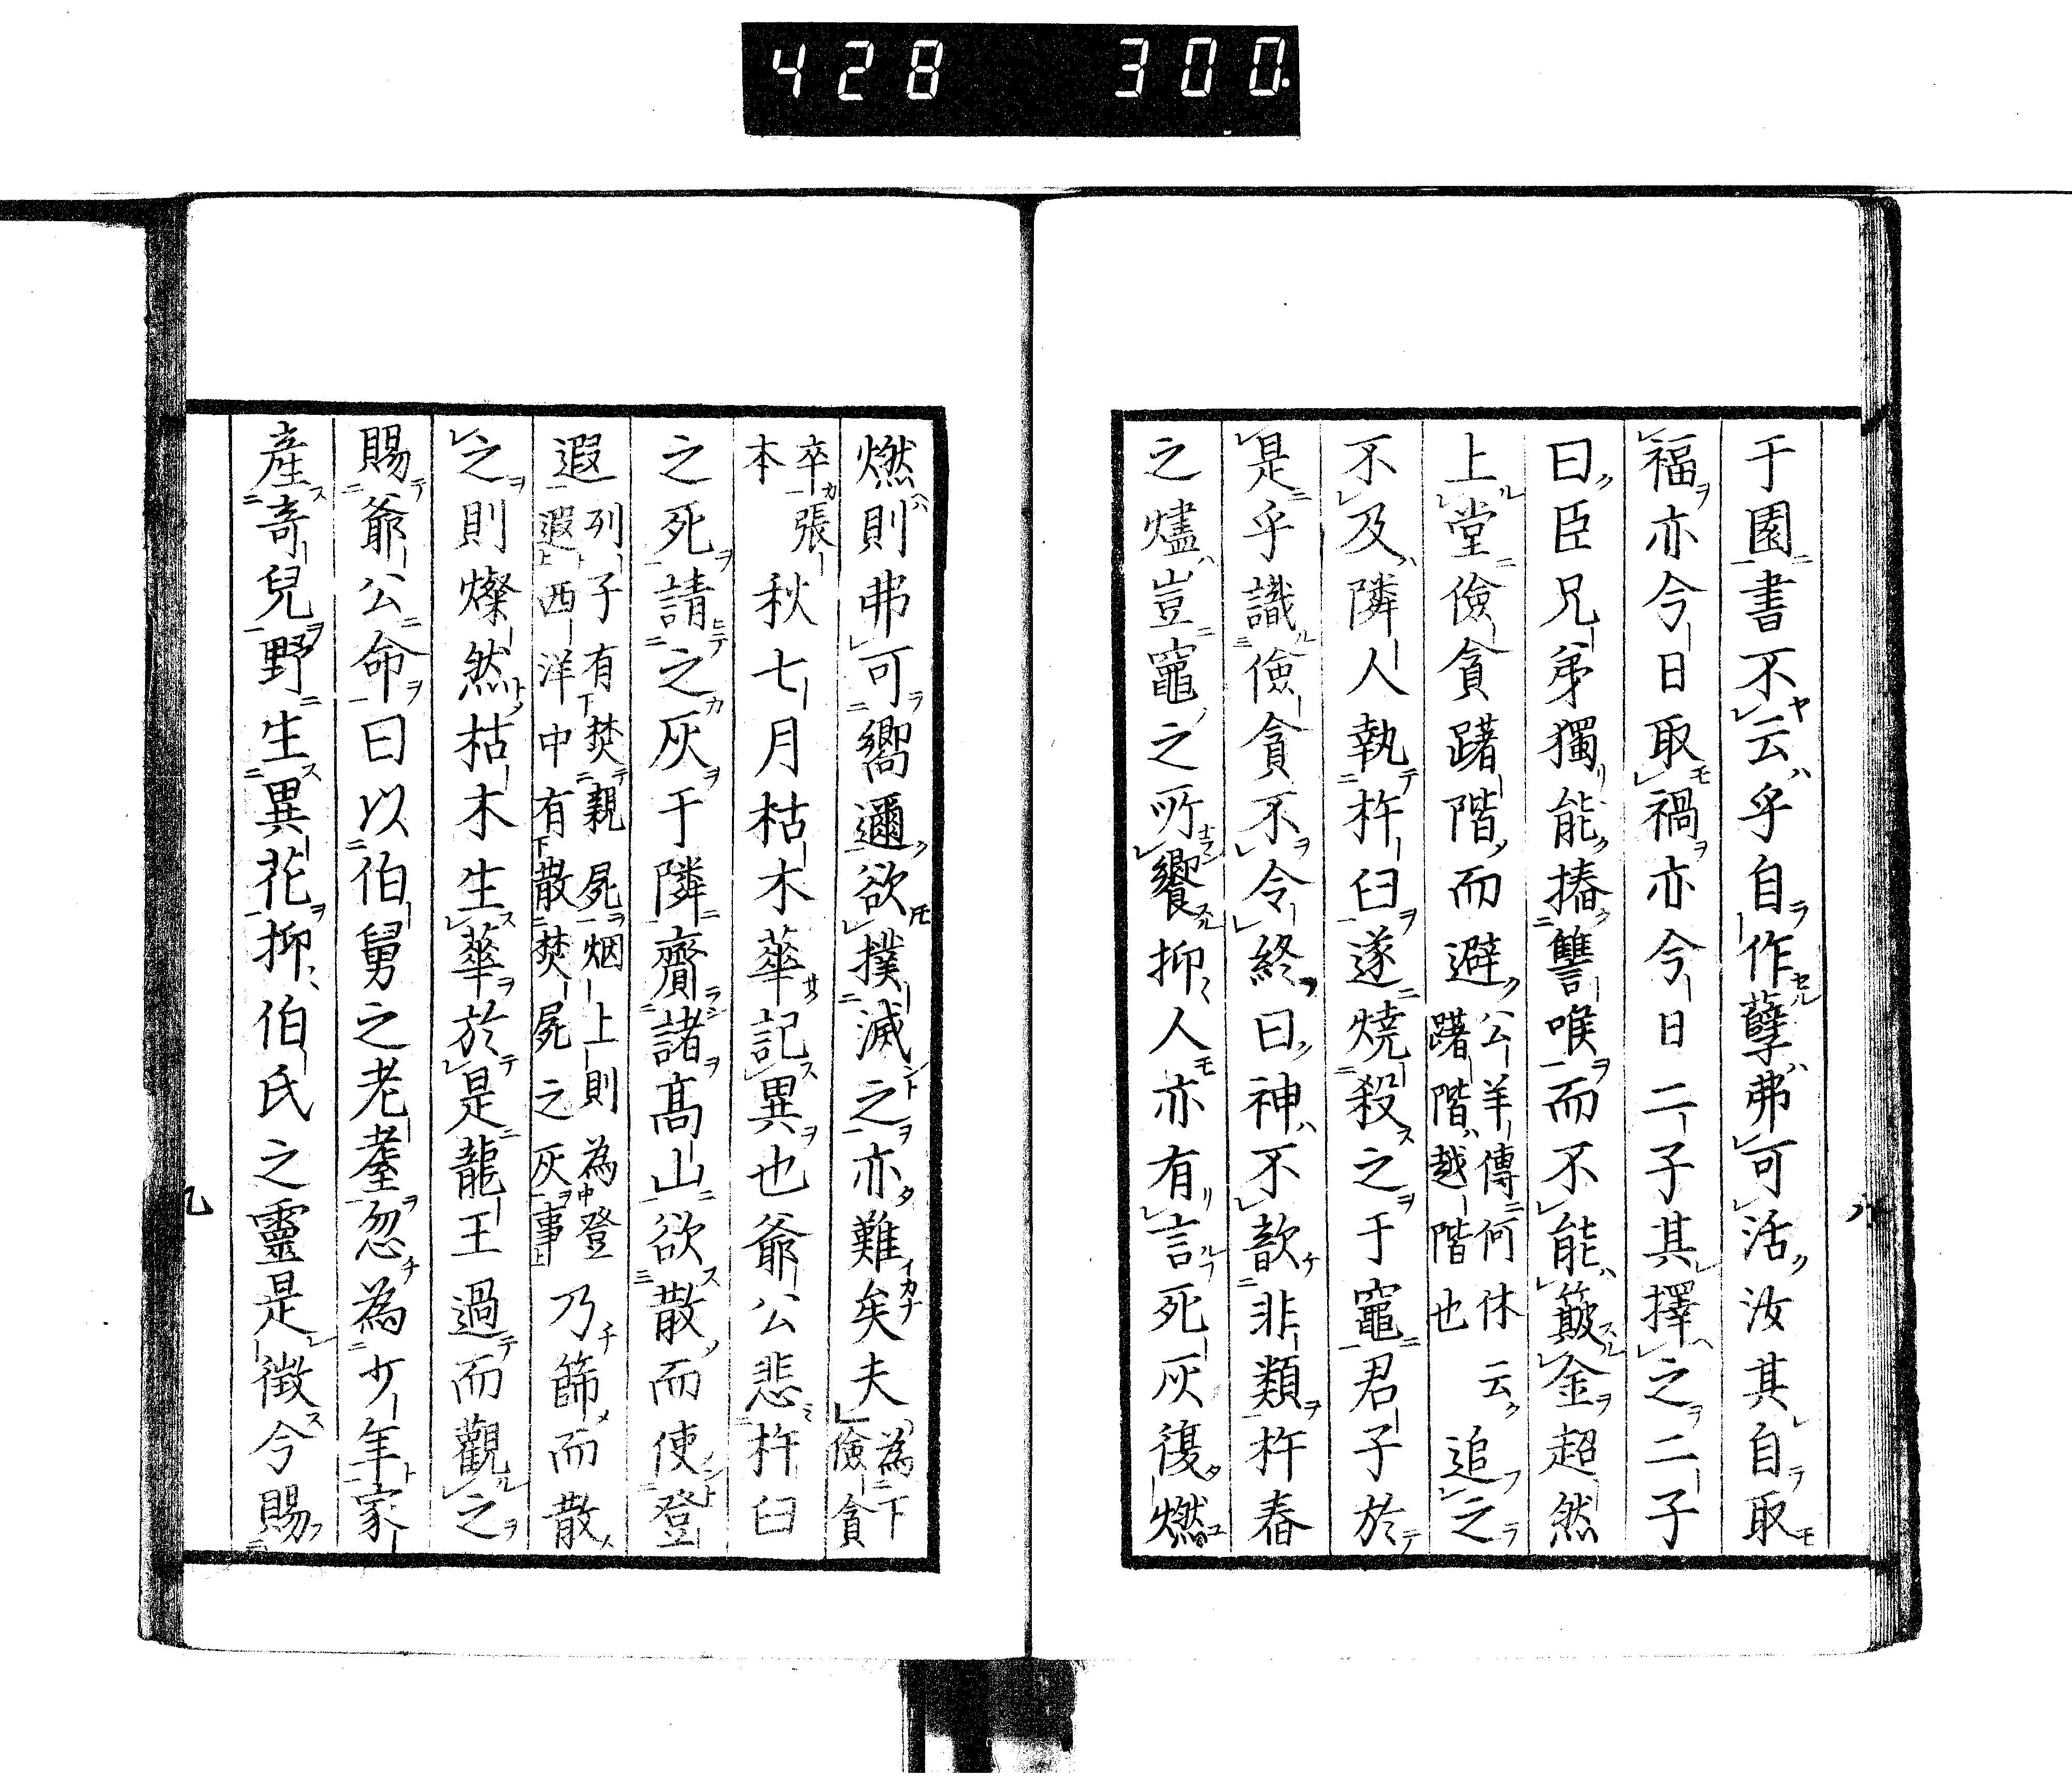 428 300
于園書不云乎自作孽弗可活汝其自取
福亦今日取禍亦今日二子其擇之二子
曰臣兄弟獨能摏讐喉而不能簸金超然
上堂儉貪躇階而避公羊傳何休云躇階越階也追之
不及隣人執杵臼遂燒殺之于竈君子於
是乎識儉貪不令終曰神不歆非類杵舂
之燼豈竈之所饗抑人亦有言死灰復燃
八
燃則弗可嚮邇欲撲滅之亦難矣夫為下儉貪
卒張本秋七月枯木華記異也爺公悲杵臼
之死請之灰于隣齎諸高山欲散而使登
遐列子有焚親屍烟上則為登遐西洋中有散焚屍之灰事乃篩而散
之則燦然枯木生華於是龍王過而觀之
賜爺公命曰以伯舅之老耋忽為少年家
產奇兒野生異花抑伯氏之靈是徵今賜
九